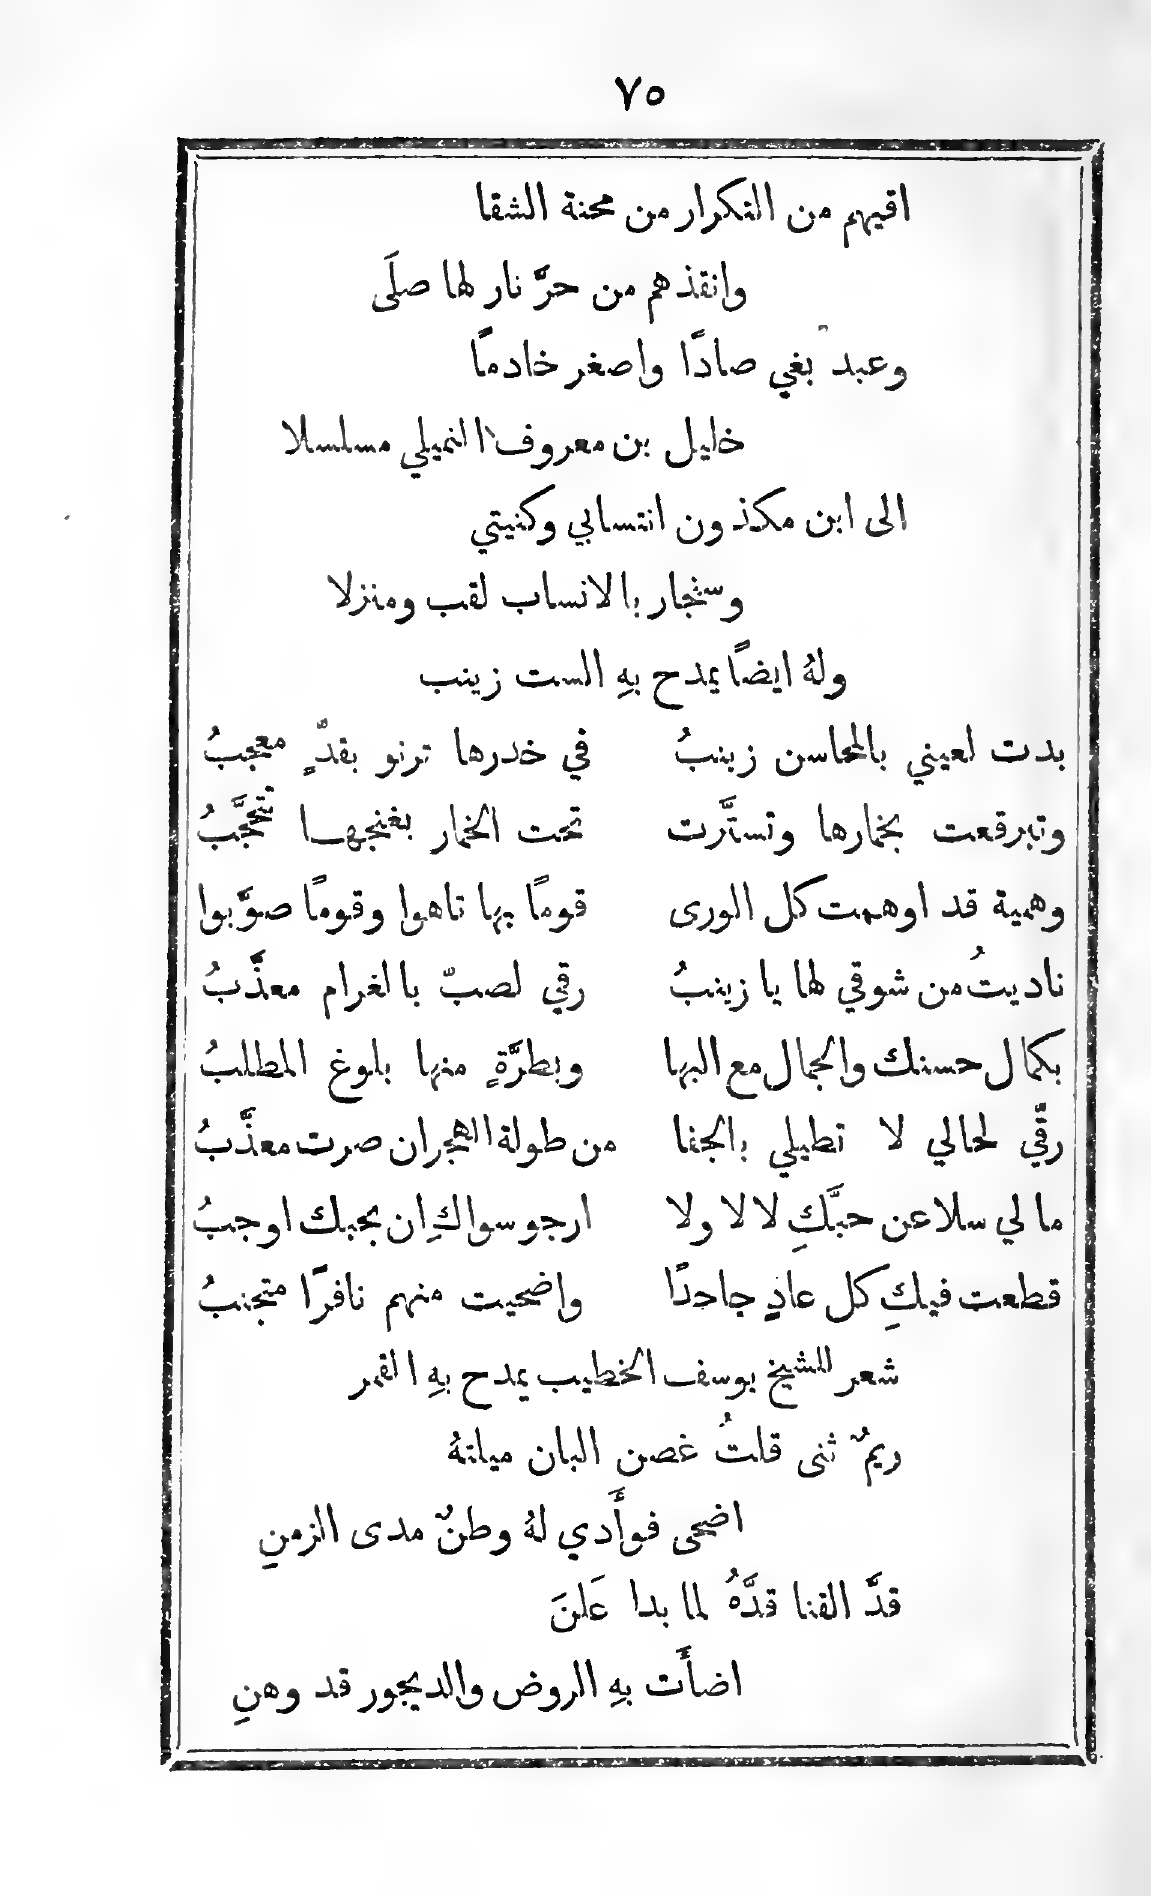 ٧٥
اقيهم من التكرار من محنة الشقا
وانقذهم من حرَّ نار لها صلَى
وعبد بغي صادًا واصغر خادمًا
خليل بن معروف النميلي مسلسلا
الى ابن مكذون انتسابي وكنيتي
وسنجار بالانساب لقب ومنزلا
ولهُ ايضًا يمدح بهِ الست زينب
بدت لعيني بالمحاسن زينبُ في خدرها ترنو بقدٍّ معجبُ
وتبرقعت بخمارها وتستَّرت تحت الخمار بغنجهـا تتحجَّبُ
وهمية قد اوهمت كل الورى قومًا بها تاهوا وقومًا صوَّبوا
ناديتُ من شوقي لها يا زينبُ رقي لصبّ بالغرام معذَّبُ
بكمال حسنك والجمال مع البها وبطرَّةٍ منها بلوغ المطلبُ
رقَّي لحالي لا تطيلي بالجفا من طولة الهجران صرت معذَّبُ
ما لي سلا عن حبَّكِ لا لا ولا ارجو سواكِ ان بحبك اوجبُ
قطعت فيكِ كل عادٍ جاحدًا واضحيت منهم نافرًا متجنبُ
شعر للشيخ يوسف الخطيب يمدح بهِ القمر
ريمٌ ثنى قلتُ غصن البان ميانهُ
اضحى فوأَدي لهُ وطنٌ مدى الزمنِ
قدَّ القنا قدَّهُ لما بدا عَلنَ
اضأَت بهِ الروض والديجور قد وهنِ